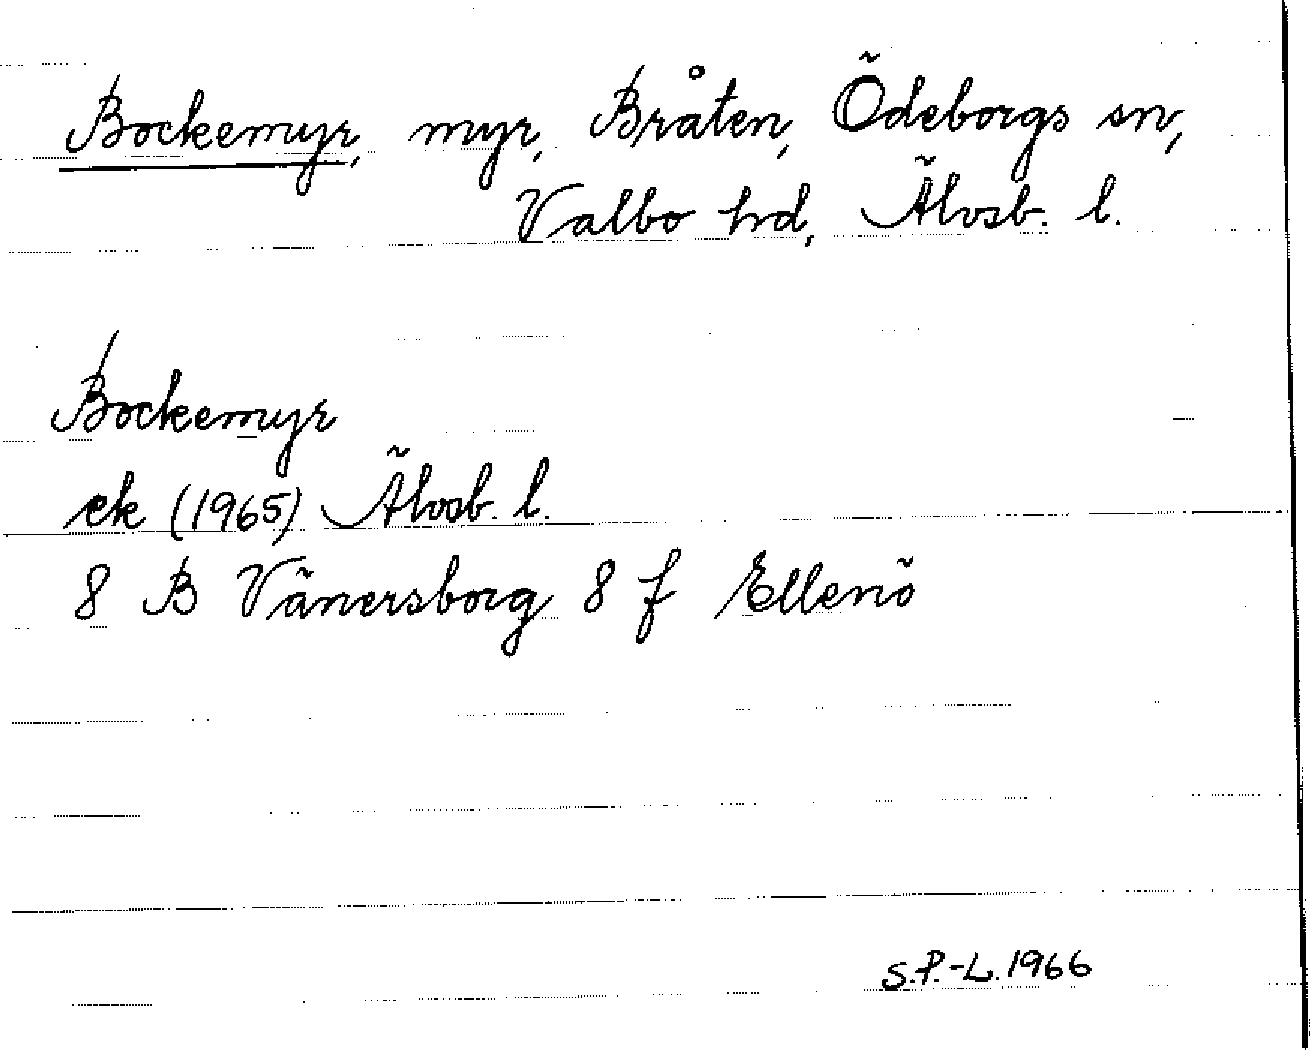 Bockemyr, myr, Bråten, Ödeborgs sn,
Valbo hd, Älvsb. l.
Bockemyr
ek (1965) Älvsb. l.
8 B Vänersborg 8 f Ellenö
S.P.-L. 1966